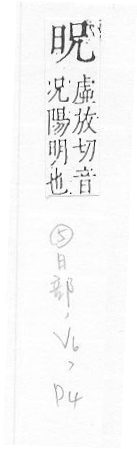 晛
虛放切音
况陽明也
⑤日部，V6，P4